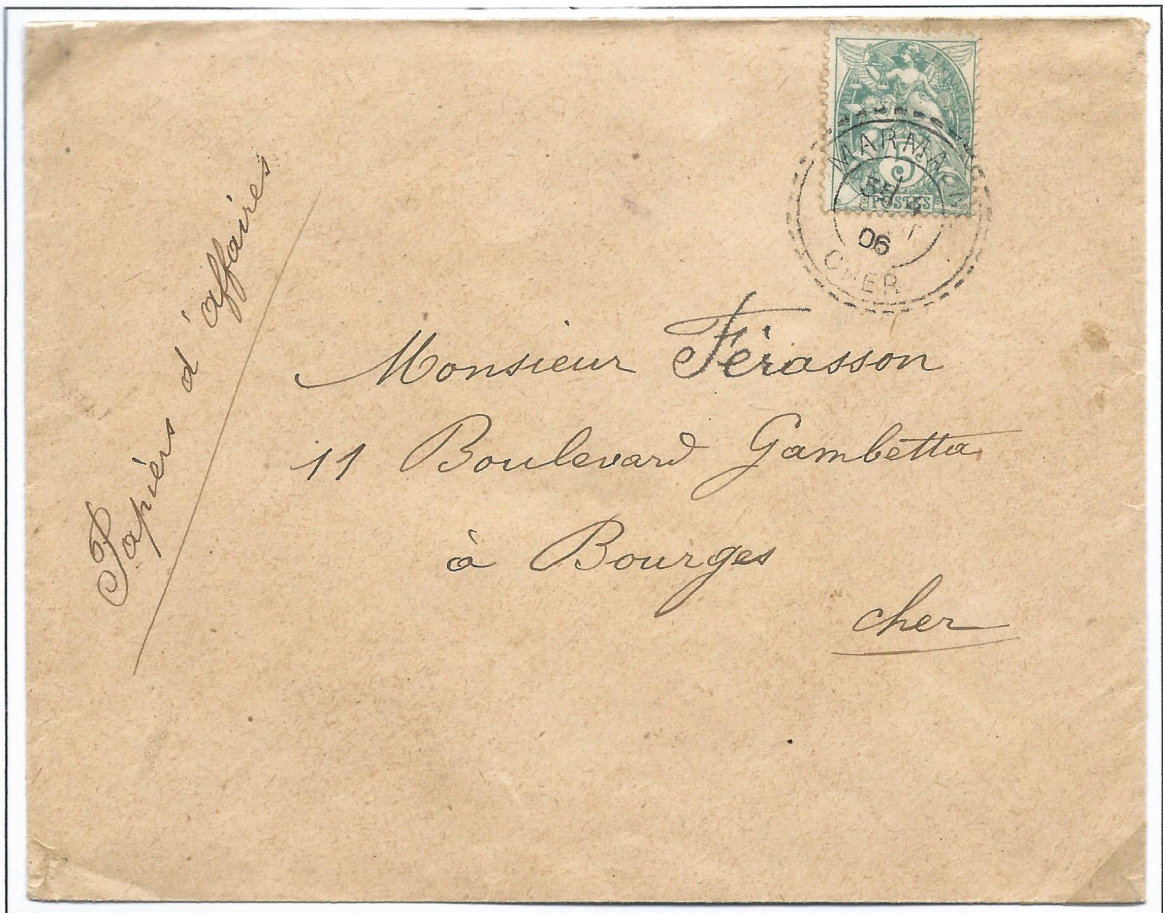 Papiers d'affaires
5
POSTES
MARMAGNE
06
CHER
Monsieur Férasson
11 Boulevard Gambetta
à Bourges
cher